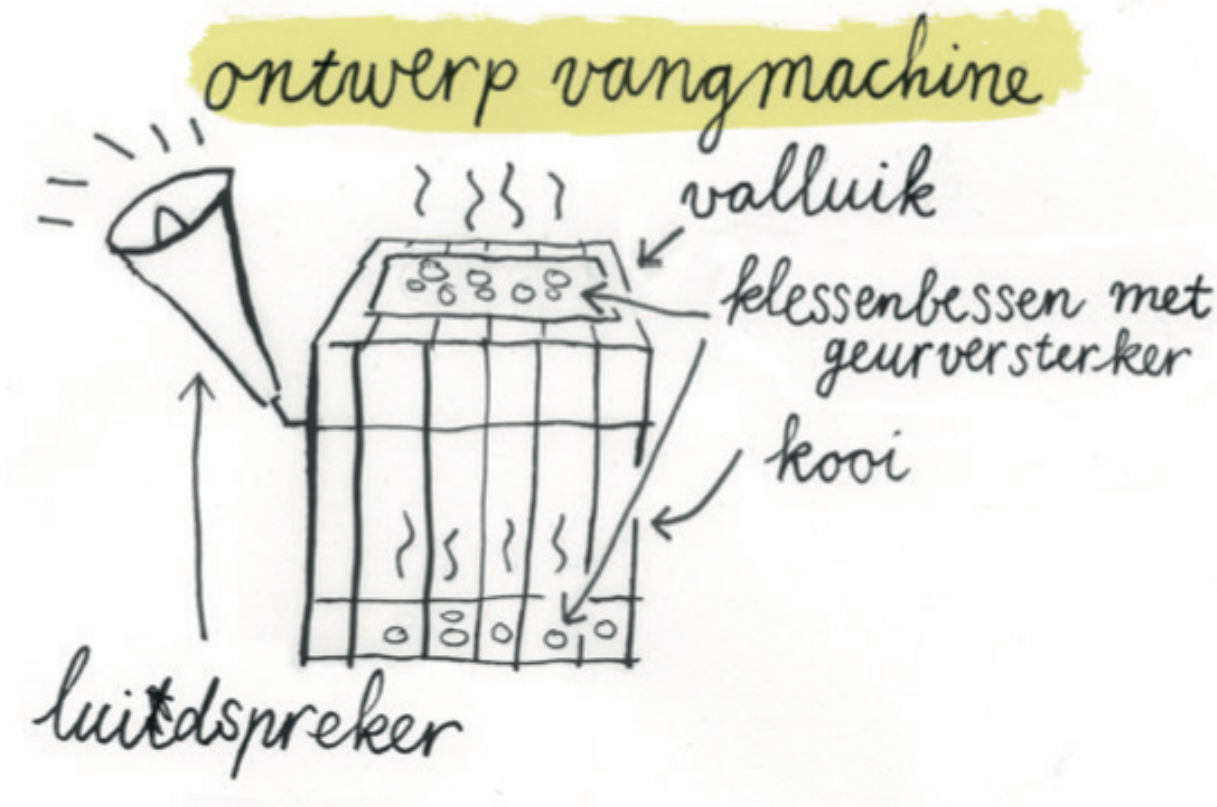 ontwerp vangmachine
valluik
klessenbessen met
geurversterker
kooi
luidspreker